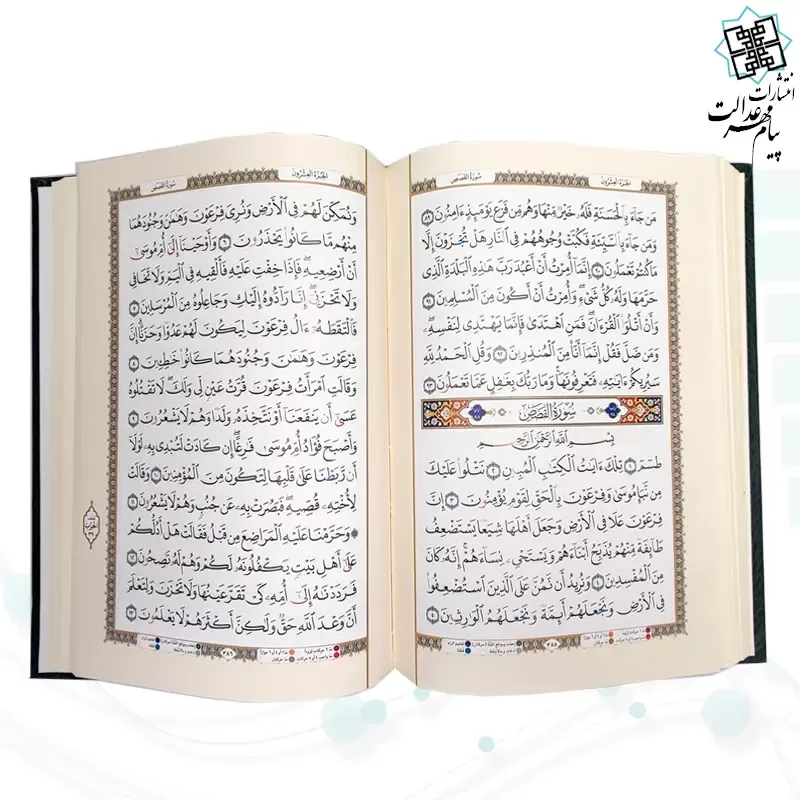 انتشارات
پیام مهر عدالت
الجزء العشرون
سورة القصص
مَن جَآءَ بِٱلْحَسَنَةِ فَلَهُۥ خَيْرٌ مِّنْهَا وَهُم مِّن فَزَعٍ يَوْمَئِذٍ ءَامِنُونَ ٨٩
وَمَن جَآءَ بِٱلسَّيِّئَةِ فَكُبَّتْ وُجُوهُهُمْ فِي ٱلنَّارِ هَلْ تُجْزَوْنَ إِلَّا
مَا كُنتُمْ تَعْمَلُونَ ٩٠ إِنَّمَآ أُمِرْتُ أَنْ أَعْبُدَ رَبَّ هَٰذِهِ ٱلْبَلْدَةِ ٱلَّذِي
حَرَّمَهَا وَلَهُۥ كُلُّ شَيْءٍ وَأُمِرْتُ أَنْ أَكُونَ مِنَ ٱلْمُسْلِمِينَ ٩١
وَأَنْ أَتْلُوَاْ ٱلْقُرْءَانَ فَمَنِ ٱهْتَدَىٰ فَإِنَّمَا يَهْتَدِي لِنَفْسِهِۦ
وَمَن ضَلَّ فَقُلْ إِنَّمَآ أَنَا۠ مِنَ ٱلْمُنذِرِينَ ٩٢ وَقُلِ ٱلْحَمْدُ لِلَّهِ
سَيُرِيكُمْ ءَايَٰتِهِۦ فَتَعْرِفُونَهَا وَمَا رَبُّكَ بِغَٰفِلٍ عَمَّا تَعْمَلُونَ ٩٣
سُورَةُ القَصَصِ
بِسْمِ ٱللَّهِ ٱلرَّحْمَٰنِ ٱلرَّحِيمِ
طسٓمٓ ١ تِلْكَ ءَايَٰتُ ٱلْكِتَٰبِ ٱلْمُبِينِ ٢ نَتْلُواْ عَلَيْكَ
مِن نَّبَإِ مُوسَىٰ وَفِرْعَوْنَ بِٱلْحَقِّ لِقَوْمٍ يُؤْمِنُونَ ٣ إِنَّ
فِرْعَوْنَ عَلَا فِي ٱلْأَرْضِ وَجَعَلَ أَهْلَهَا شِيَعًا يَسْتَضْعِفُ
طَآئِفَةً مِّنْهُمْ يُذَبِّحُ أَبْنَآءَهُمْ وَيَسْتَحْيِۦ نِسَآءَهُمْ إِنَّهُۥ كَانَ
مِنَ ٱلْمُفْسِدِينَ ٤ وَنُرِيدُ أَن نَّمُنَّ عَلَى ٱلَّذِينَ ٱسْتُضْعِفُواْ
فِي ٱلْأَرْضِ وَنَجْعَلَهُمْ أَئِمَّةً وَنَجْعَلَهُمُ ٱلْوَٰرِثِينَ ٥
٣٨٥
الجزء العشرون
سورة القصص
وَنُمَكِّنَ لَهُمْ فِي ٱلْأَرْضِ وَنُرِيَ فِرْعَوْنَ وَهَٰمَٰنَ وَجُنُودَهُمَا
مِنْهُم مَّا كَانُواْ يَحْذَرُونَ ٦ وَأَوْحَيْنَآ إِلَىٰٓ أُمِّ مُوسَىٰٓ
أَنْ أَرْضِعِيهِ فَإِذَا خِفْتِ عَلَيْهِ فَأَلْقِيهِ فِي ٱلْيَمِّ وَلَا تَخَافِي
وَلَا تَحْزَنِيٓ إِنَّا رَآدُّوهُ إِلَيْكِ وَجَاعِلُوهُ مِنَ ٱلْمُرْسَلِينَ ٧
فَٱلْتَقَطَهُۥٓ ءَالُ فِرْعَوْنَ لِيَكُونَ لَهُمْ عَدُوًّا وَحَزَنًا إِنَّ
فِرْعَوْنَ وَهَٰمَٰنَ وَجُنُودَهُمَا كَانُواْ خَٰطِـِٔينَ ٨
وَقَالَتِ ٱمْرَأَتُ فِرْعَوْنَ قُرَّتُ عَيْنٍ لِّي وَلَكَ لَا تَقْتُلُوهُ
عَسَىٰٓ أَن يَنفَعَنَآ أَوْ نَتَّخِذَهُۥ وَلَدًا وَهُمْ لَا يَشْعُرُونَ ٩
وَأَصْبَحَ فُؤَادُ أُمِّ مُوسَىٰ فَٰرِغًا إِن كَادَتْ لَتُبْدِي بِهِۦ لَوْلَآ
أَن رَّبَطْنَا عَلَىٰ قَلْبِهَا لِتَكُونَ مِنَ ٱلْمُؤْمِنِينَ ١٠ وَقَالَتْ
لِأُخْتِهِۦ قُصِّيهِ فَبَصُرَتْ بِهِۦ عَن جُنُبٍ وَهُمْ لَا يَشْعُرُونَ ١١
۞ وَحَرَّمْنَا عَلَيْهِ ٱلْمَرَاضِعَ مِن قَبْلُ فَقَالَتْ هَلْ أَدُلُّكُمْ
عَلَىٰٓ أَهْلِ بَيْتٍ يَكْفُلُونَهُۥ لَكُمْ وَهُمْ لَهُۥ نَٰصِحُونَ ١٢
فَرَدَدْنَٰهُ إِلَىٰٓ أُمِّهِۦ كَيْ تَقَرَّ عَيْنُهَا وَلَا تَحْزَنَ وَلِتَعْلَمَ
أَنَّ وَعْدَ ٱللَّهِ حَقٌّ وَلَٰكِنَّ أَكْثَرَهُمْ لَا يَعْلَمُونَ ١٣
٣٨٦